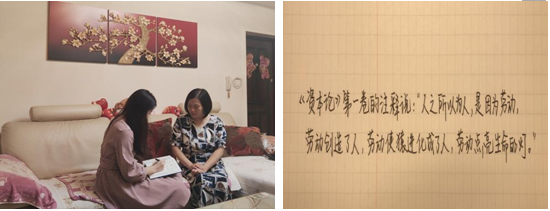 《资本论》第一卷的注释说：“人之所以为人，是因为劳动，
劳动创造了人，劳动使猿进化成了人，劳动点亮生命的灯。”